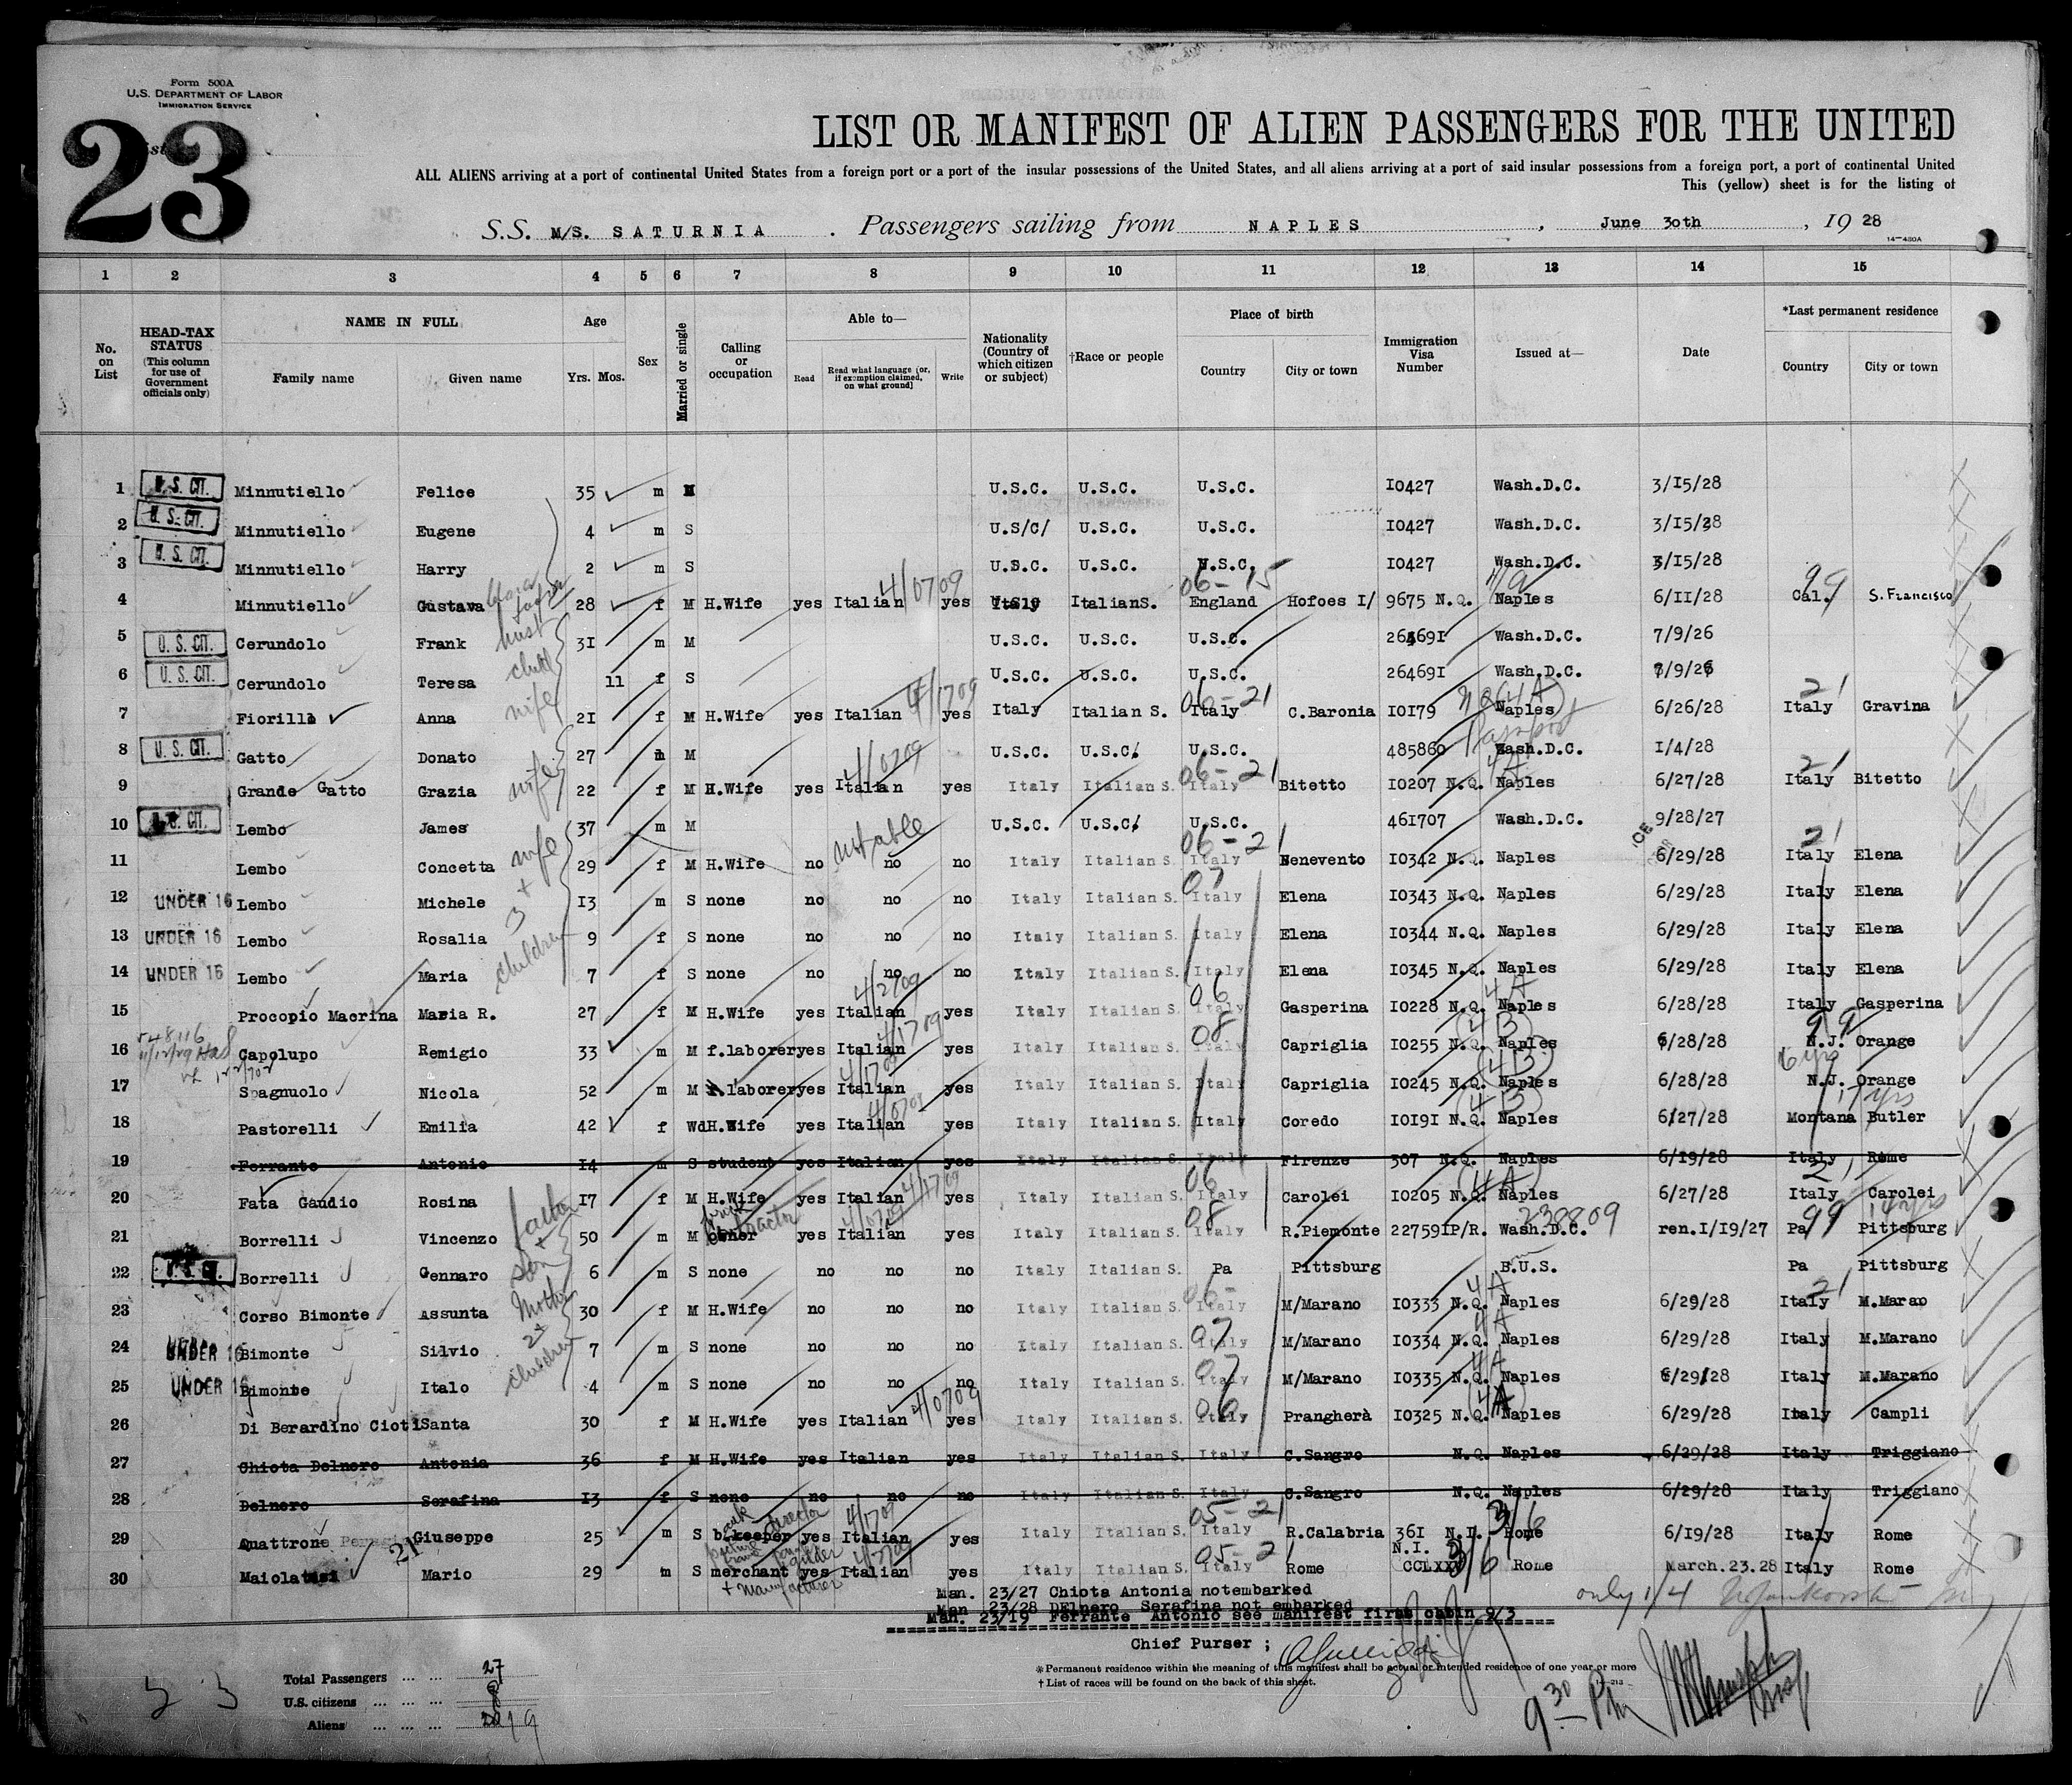 Form 500A
U.S. DEPARTMENT OF LABOR
IMMIGRATION SERVICE
23
LIST OR MANIFEST OF ALIEN PASSENGERS FOR THE UNITED
ALL ALIENS arriving at a port of continental United States from a foreign port or a port of the insular possessions of the United States, and all aliens arriving at a port of said insular possessions from a foreign port, a port of continental United
This (yellow) sheet is for the listing of
S.S. M/S. SATURNIA . Passengers sailing from NAPLES , June 30th , 19 28
14-430A
1 2 3 4 5 6 7 8 9 10 11 12 13 14 15
No. on List
HEAD-TAX STATUS (This column for use of Government officials only)
NAME IN FULL Family name Given name
Age Yrs. Mos.
Sex
Married or single
Calling or occupation
Able to— Read Read what language [or, if exemption claimed, on what ground] Write
Nationality (Country of which citizen or subject)
†Race or people
Place of birth Country City or town
Immigration Visa Number
Issued at—
Date
*Last permanent residence Country City or town
1 U.S. CIT. Minnutiello Felice 35 m M U.S.C. U.S.C. U.S.C. I0427 Wash.D.C. 3/I5/28
2 U.S. CIT. Minnutiello Eugene 4 m S U.S/C/ U.S.C. U.S.C. I0427 Wash.D.C. 3/I5/28
3 U.S. CIT. Minnutiello Harry 2 m S U.S.C. U.S.C. U.S.C. I0427 Wash.D.C. 3/I5/28
4 Minnutiello Gustava 28 f M H.Wife yes Italian 4/0709 yes Italy ItalianS. 06-15 England Hofoes I/ 9675 N.Q. Naples 6/II/28 99 Cal. S.Francisco
5 U.S. CIT. Cerundolo Frank husb 3I m M U.S.C. U.S.C. U.S.C. 26469I Wash.D.C. 7/9/26
6 U.S. CIT. Cerundolo Teresa child 11 f S U.S.C. U.S.C. U.S.C. 26469I Wash.D.C. 7/9/26
7 Fiorillo Anna wife 2I f M H.Wife yes Italian 4/1709 yes Italy Italian S. 06-21 Italy C.Baronia I0179 Naples 6/26/28 21 Italy Gravina
8 U.S. CIT. Gatto Donato 27 m M U.S.C. U.S.C. U.S.C. 485860 Wash.D.C. I/4/28
9 Grande Gatto Grazia wife 22 f M H.Wife yes Italian 4/0709 yes Italy Italian S. 06-21 Italy Bitetto I0207 N.Q. 4A Naples 6/27/28 21 Italy Bitetto
10 U.S. CIT. Lembo James 37 m M U.S.C. U.S.C. U.S.C. 46I707 Wash.D.C. 9/28/27
11 Lembo Concetta wife 29 f M H.Wife no not able no no Italy Italian S. 06-21 Italy Benevento I0342 N.Q. Naples 6/29/28 21 Italy Elena
12 UNDER 16 Lembo Michele + I3 m S none no no no Italy Italian S. 07 Italy Elena I0343 N.Q. Naples 6/29/28 Italy Elena
13 UNDER 16 Lembo Rosalia 3 9 f S none no no no Italy Italian S. Italy Elena I0344 N.Q. Naples 6/29/28 Italy Elena
14 UNDER 16 Lembo Maria children 7 f S none no no no Italy Italian S. Italy Elena I0345 N.Q. Naples 6/29/28 Italy Elena
15 Procopio Macrina Maria R. 27 f M H.Wife yes Italian 4/2709 yes Italy Italian S. 06 Italy Gasperina I0228 N.Q. 4A Naples 6/28/28 Italy Gasperina
16 Capolupo Remigio 33 m M f.laborer yes Italian 4/1709 yes Italy Italian S. 08 Italy Capriglia I0255 N.Q. 4B Naples 6/28/28 99 N.J. Orange
17 Spagnuolo Nicola 52 m M f.laborer yes Italian 4/1709 yes Italy Italian S. Italy Capriglia I0245 N.Q. 4B Naples 6/28/28 6 yrs N.J. Orange
18 Pastorelli Emilia 42 f Wd H.Wife yes Italian 4/0709 yes Italy Italian S. Italy Coredo I0I9I N.Q. 4B Naples 6/27/28 17 yrs Montana Butler
19 Ferrante Antonio I4 m S student yes Italian yes Italy Italian S. Italy Firenze 307 N.Q. Naples 6/I9/28 Italy Rome
20 Fata Gaudio Rosina I7 f M H.Wife yes Italian 4/1709 yes Italy Italian S. 06 Italy Carolei I0205 N.Q. 4A Naples 6/27/28 21 Italy Carolei
21 Borrelli Vincenzo father 50 m M yes Italian 4/0709 yes Italy Italian S. 08 Italy R.Piemonte 22759IP/R. Wash.D.C. ren.I/I9/27 99 Pa Pittsburg 14 yrs
22 U.S. CIT. Borrelli Gennaro + son 6 m S none no no no Italy Italian S. Pa Pittsburg B.U.S. Pa Pittsburg
23 Corso Bimonte Assunta Mother 30 f M H.Wife no no no Italy Italian S. 06- Italy M/Marano I0333 N.Q. 4A Naples 6/29/28 21 Italy M.Marao
24 UNDER 16 Bimonte Silvio 2+ 7 m S none no no no Italy Italian S. 07 Italy M/Marano I0334 N.Q. 4A Naples 6/29/28 Italy M.Marano
25 UNDER 16 Bimonte Italo children 4 m S none no no no Italy Italian S. 07 Italy M/Marano I0335 N.Q. 4A Naples 6/29/28 Italy M.Marano
26 Di Berardino Cioti Santa 30 f M H.Wife yes Italian 4/0709 yes Italy Italian S. 06 Italy Prangherà I0325 N.Q. 4A Naples 6/29/28 Italy Campli
27 Chiota Delnero Antonia 36 f M H.Wife yes Italian yes Italy Italian S. Italy C.Sangro N.Q. Naples 6/29/28 Italy Triggiano
28 Delnero Serafina I3 f S none no no no Italy Italian S. Italy C.Sangro N.Q. Naples 6/29/28 Italy Triggiano
29 Quattrone Giuseppe 25 m S b.keeper yes Italian 4/1709 yes Italy Italian S. 05-21 Italy R.Calabria 36I N.I. 3/6 Rome 6/I9/28 Italy Rome
30 Maiola 21 Mario 29 m S merchant + manufacturer yes Italian yes Italy Italian S. 05-21 Italy Rome N.I. CCLXXV 3/6 Rome March.23.28 Italy Rome
Man. 23/27 Chiota Antonia notembarked
Man 23/28 DElnero Serafina not embarked
Man. 23/19 Ferrante Antonio see manifest first cabin 9/3
only 1/4
Chief Purser ;
*Permanent residence within the meaning of this manifest shall be actual or intended residence of one year or more
† List of races will be found on the back of this sheet.
Total Passengers ... ... 27
U.S. citizens ... ... ... 8
Aliens ... ... ... 19
9 30 Pm